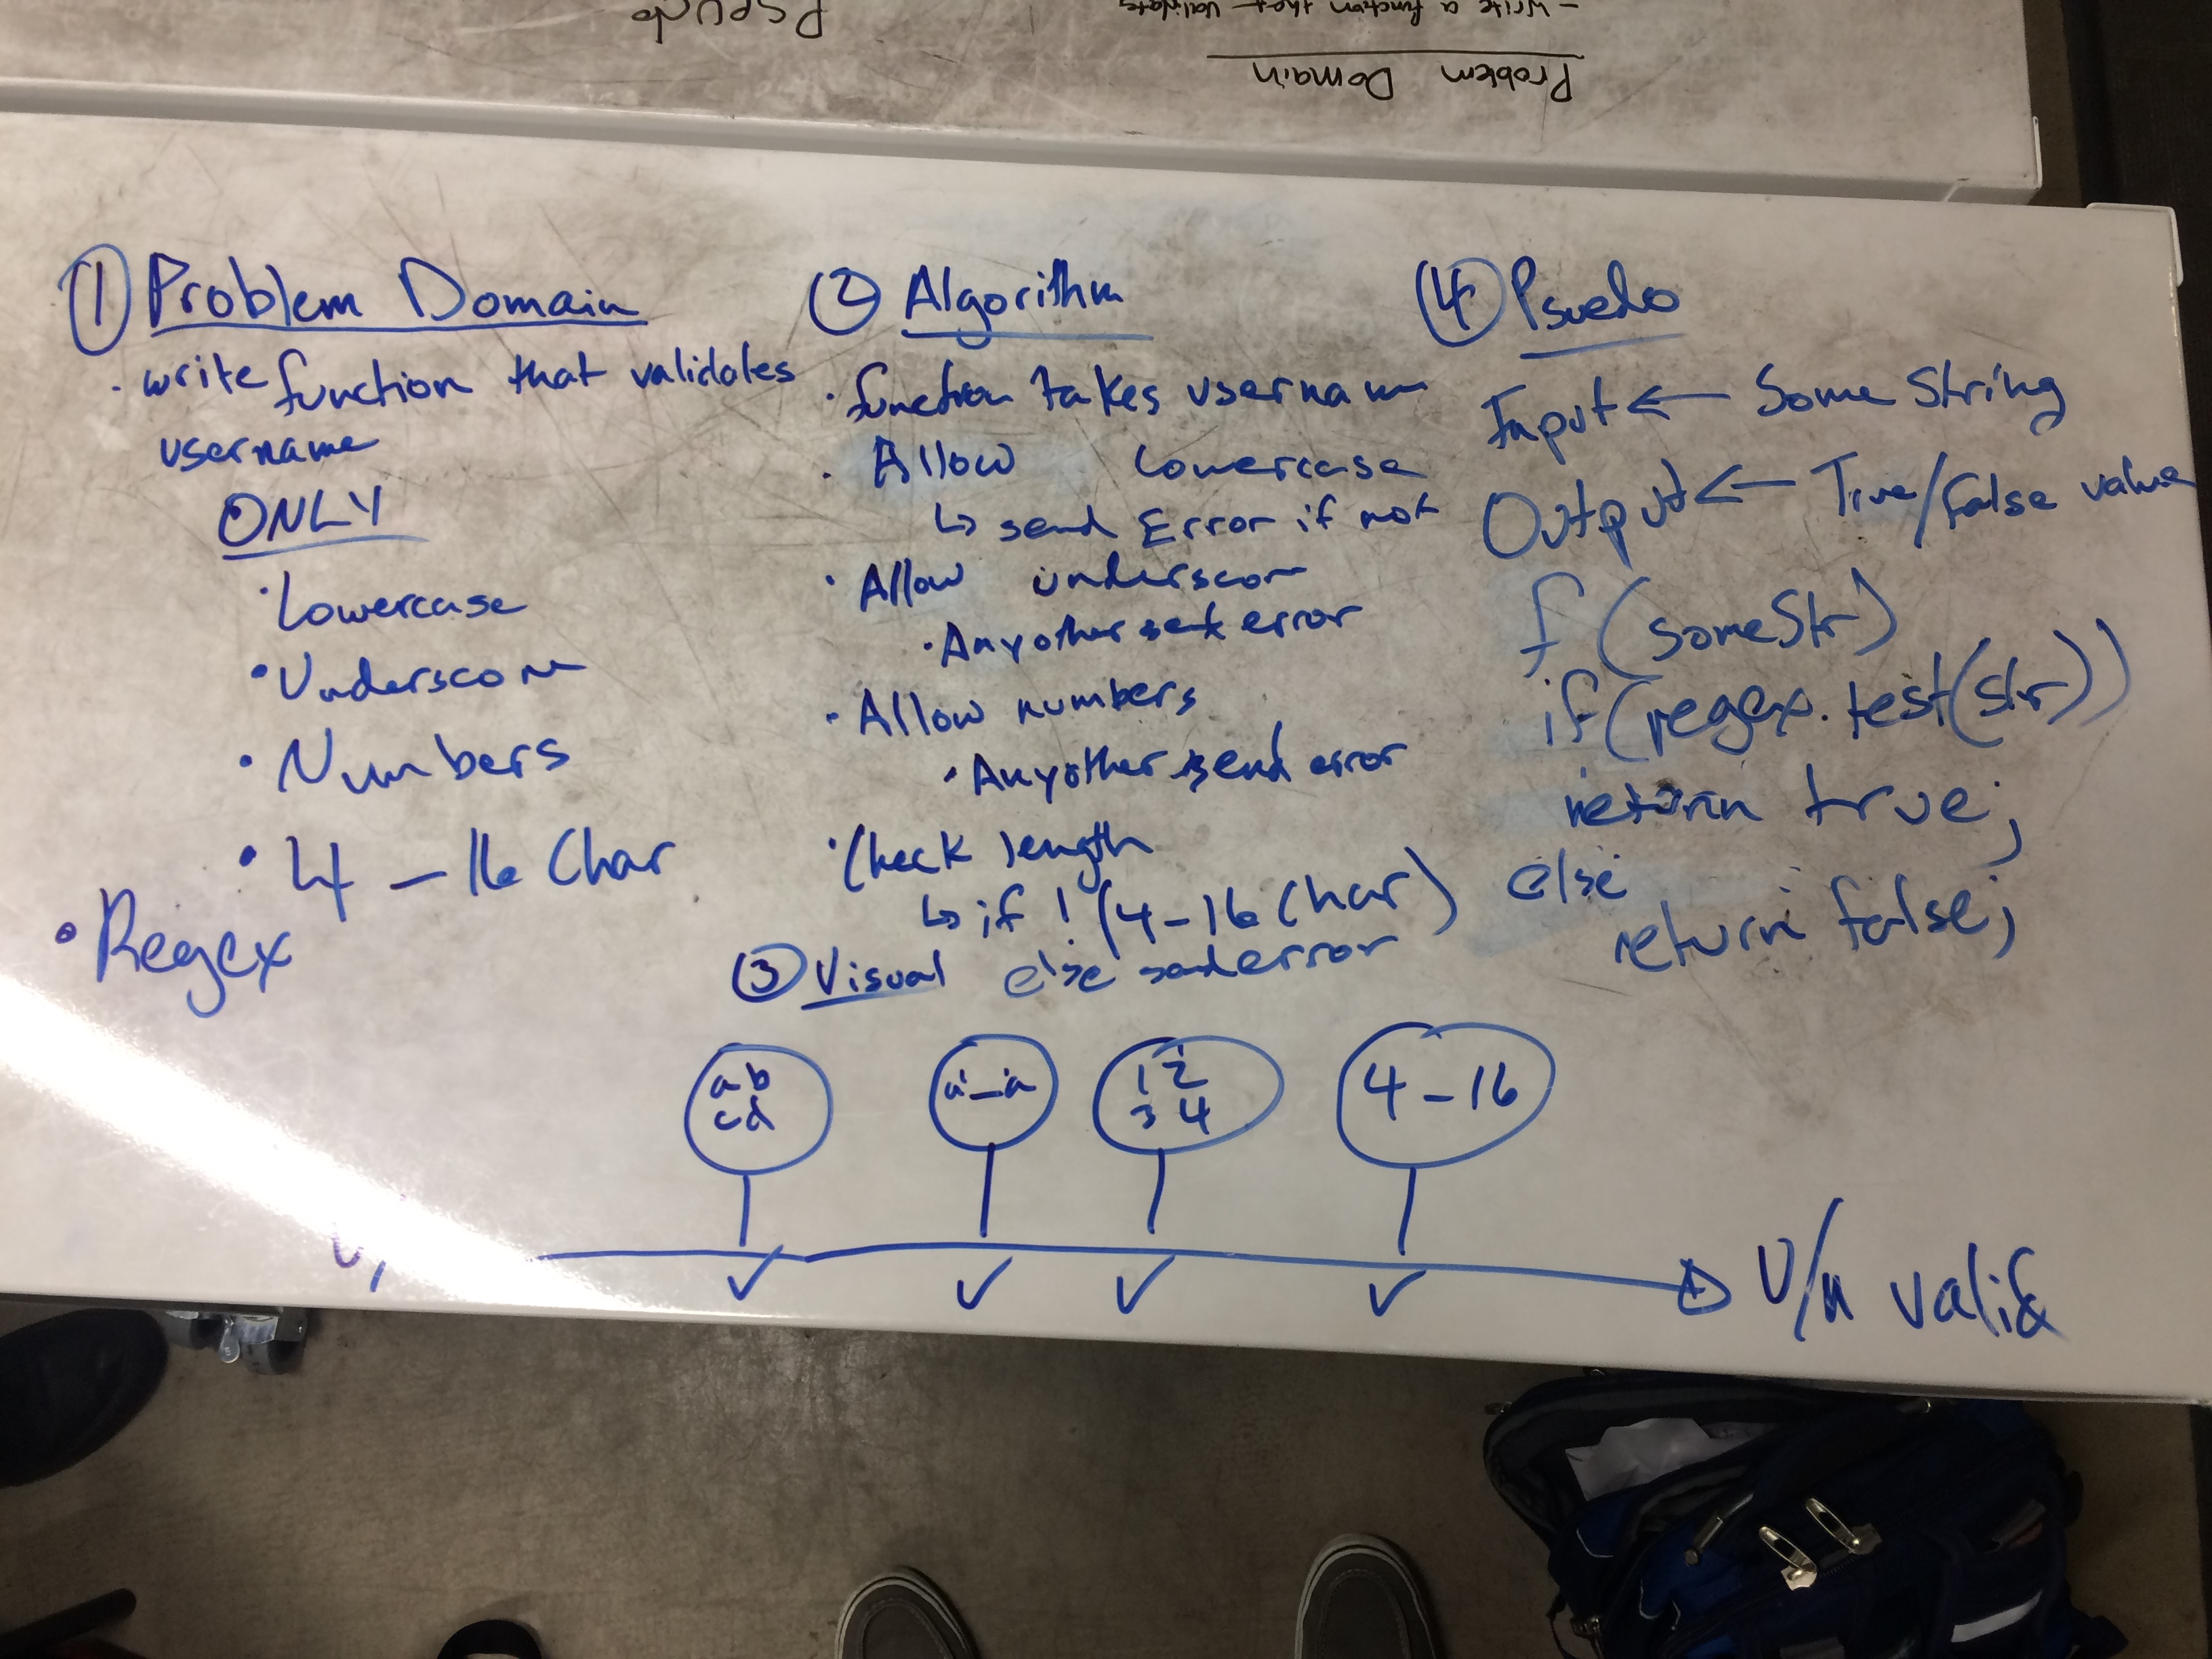 ① Problem Domain
· write function that validates
username
ONLY
· Lowercase
· Underscor
· Numbers
· 4 - 16 Char
· Regex
② Algorithm
· function takes usernam
· Allow lowercase
↳ send Error if not
· Allow underscor
· Any other sent error
· Allow numbers
· Any other send error
· Check length
↳ if 1 (4-16 Char)
else send error
③ Visual
ab
cd
a_a
1 2
3 4
4 - 16
U/n valid
④ Psuedo
Input ← Some String
Output ← True/False value
f (someStr)
if (regex.test(str))
return true;
else
return false;
Problem Domain
- write a function that validates
Psudo